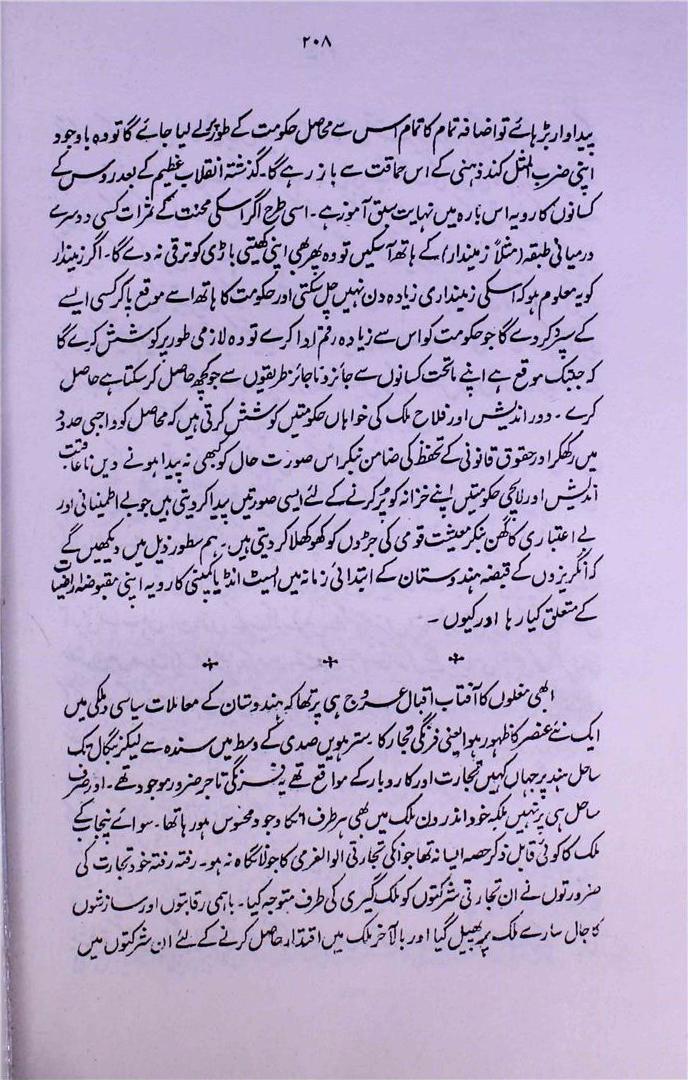 ۲۰۸
پیداوار بڑہائے تو اضافہ تمام کا تمام اس سے محاصل حکومت کے طور پر لے لیا جائے گا تو وہ باوجود
اپنی ضرب المثل کند ذہنی کے اس حماقت سے باز رہے گا۔ گذشتہ انقلاب عظیم کے بعد روس کے
کسانوں کا رویہ اس بارہ میں نہایت سبق آموز ہے۔ اسی طرح اگر اسکی محنت کے ثمرات کسی دوسرے
درمیانی طبقہ (مثلاً زمیندار) کے ہاتھ آسکیں تو وہ پھر بھی اپنی کھیتی باڑی کو ترقی نہ دے گا۔ اگر زمیندار
کو یہ معلوم ہو کہ اسکی زمینداری زیادہ دن نہیں چل سکتی اور حکومت کا ہاتھ اسے موقع پا کر کسی ایسے
کے سپرد کر دے گا جو حکومت کو اس سے زیادہ رقم ادا کرے تو وہ لازمی طور پر کوشش کرے گا
کہ جبتک موقع ہے اپنے ماتحت کسانوں سے جائز و ناجائز طریقوں سے جو کچھ حاصل کر سکتا ہے حاصل
کرے۔ دور اندیش اور فلاح ملک کی خواہاں حکومتیں کوشش کرتی ہیں کہ محاصل کو واجبی حدود
میں رکھکر اور حقوق قانونی کے تحفظ کی ضامن بنکر اس صورت حال کو کبھی نہ پیدا ہونے دیں ناعاقبت
اندیش اور لالچی حکومتیں اپنے خزانہ کو پُر کرنے کے لئے ایسی صورتیں پیدا کر دیتی ہیں جو بے اطمینانی اور
بے اعتباری کا گھن بنکر معیشت قومی کی جڑوں کو کھوکھلا کر دیتی ہیں۔ ہم سطور ذیل میں دیکھیں گے
کہ انگریزوں کے قبضہ ہندوستان کے ابتدائی زمانہ میں ایسٹ انڈیا کمپنی کا رویہ اپنی مقبوضہ اراضیات
کے متعلق کیا رہا اور کیوں۔
ابھی مغلوں کا آفتاب اقبال عروج ہی پر تھا کہ ہندوستان کے معاملات سیاسی و ملکی میں
ایک نئے عنصر کا ظہور ہوا یعنی فرنگی تجار کا۔ سترہویں صدی کے وسط میں سندھ سے لیکر بنگال تک
ساحل ہند پر جہاں کہیں تجارت اور کاروبار کے مواقع تھے یہ فرنگی تاجر ضرور موجود تھے۔ اور صرف
ساحل ہی پر نہیں بلکہ خود اندرون ملک میں بھی ہر طرف انکا وجود محسوس ہو رہا تھا۔ سوائے پنجاب کے
ملک کا کوئی قابل ذکر حصہ ایسا نہ تھا جو انکی تجارتی الوالعزمی کا جولانگاہ نہ ہو۔ رفتہ رفتہ خود تجارت کی
ضرورتوں نے ان تجارتی شرکتوں کو ملک گیری کی طرف متوجہ کیا۔ باہمی رقابتوں اور سازشوں
کا جال سارے ملک پر پھیل گیا اور بالآخر ملک میں اقتدار حاصل کرنے کے لئے ان شرکتوں میں